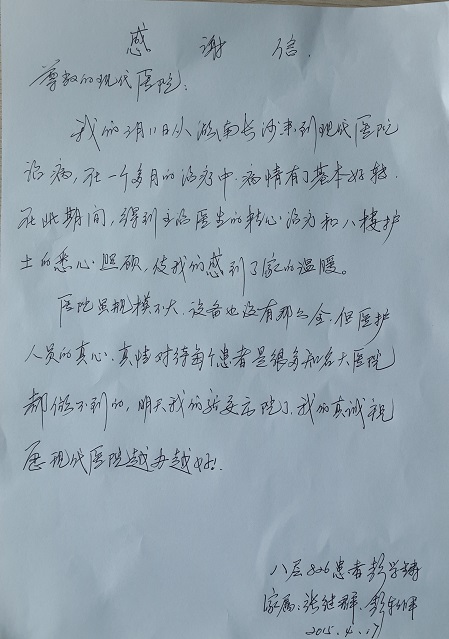 感谢信.
尊敬的现代医院:
我们3月11日从湖南长沙来到现代医院
治病,在一个多月的治疗中.病情有了基本好转.
在此期间,得到主治医生的精心治疗和八楼护
士的悉心照顾,使我们感到了家的温暖。
医院虽规模不大.设备也没有那么全.但医护
人员的真心.真情对待每个患者是很多知名大医院
都做不到的,明天我们就要出院了,我们真诚祝
愿现代医院越办越好!
八层826患者彭学
家属:张继群.彭
2015.4.17